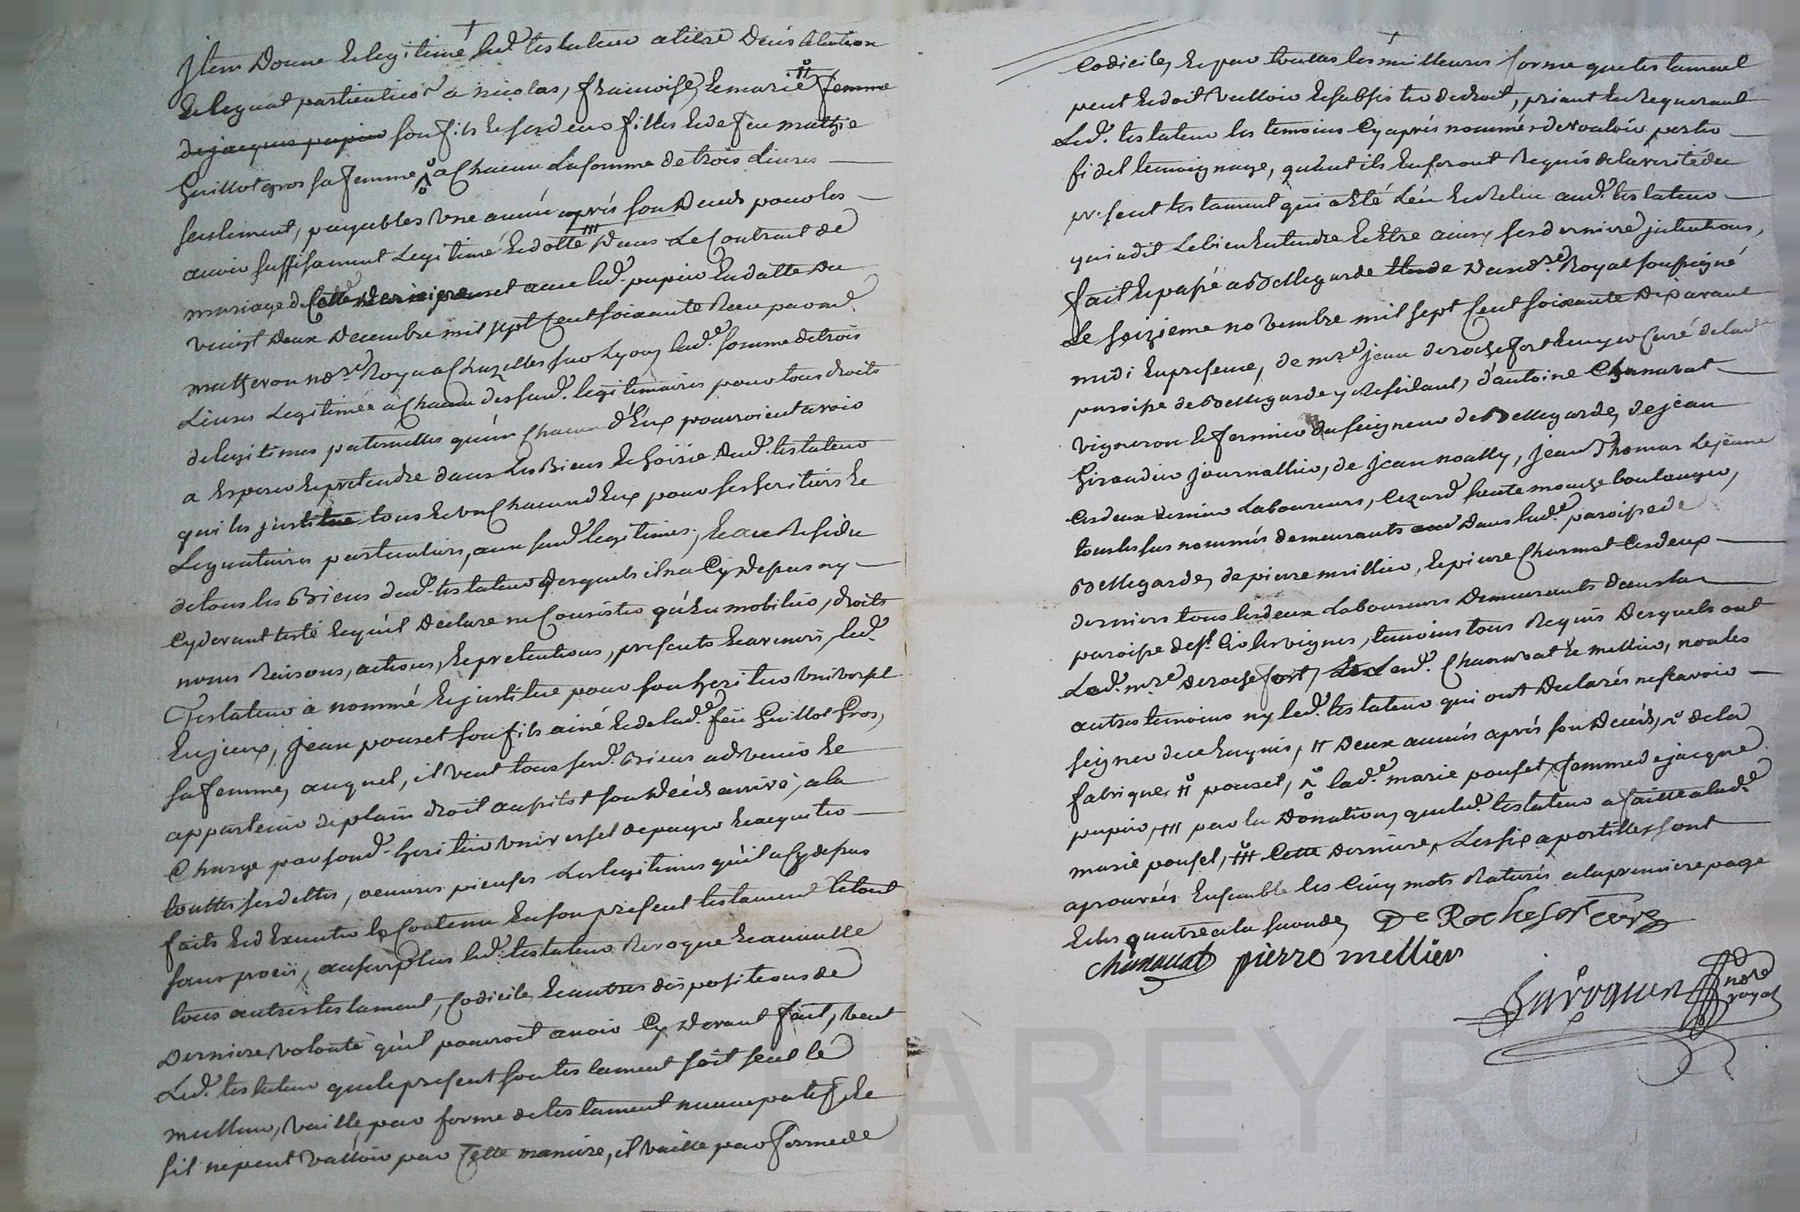 Item Donne et legitime led. testateur a titre D'institution
et legat particulier a nicolas, françoise, et marie femme
de jacques pupier son fils et ses deux filles et de feu mathie
Guillot gros sa femme a Chacun La somme de trois Livres
seulement, payables une année après son Deceds pour les
avoir suffisament Legitimé et dotté Dans Le Contrat de
mariage de Cette Derniere pouset avec led. pupier En datte du
vingt Deux Decembre mil sept Cent soixante Recu par
notre Royal a Chazelles sur Lyon, lad. somme de trois
Livres Legitimée a Chacun des sud. legitimaires pour tous droits
de legitimes paternelles qu'un Chacun d'Eux pourroient avoir
a Esperer et pretendre dans Les Biens et hoirie dud. testateur
qui les institue tous et un Chacun d'Eux pour ses heritiers et
Legataires particuliers, aux sud. legitimes, et au Residu
de tous les Biens dud. testateur desquels il n'a Cy Depus ny
Cy devant testé Et qu'il Declare ne Consister qu'En mobilier, droits
noms Raisons, actions, et pretentions, presents et avenirs, led.
Testateur a nommé Et institue pour son heritier universel
Jean pouset son fils ainé Et de lad. feüe Guillot Gros,
sa femme, auquel, il veut tous sesd. Biens advenir et
appartenir de plain droit aussitôt son Décéds arrivé, a la
Charge par sond. heritier universel de payer et acquitter
touttes ses dettes, oeuvres pieuses Les legitimes qu'il a Cy depus
faits Et d'Executer le Contenu En son present testament le tout
sans procès, au surplus led. testateur Revoque Et annulle
tous autres testament, Codicile, Et autres dispositions de
Derniere volonté qu'il pourroit avoir Cy Devant fait, veut
Led. testateur que le present son testament soit seul le
meilleur, vaille par forme de testament nuncupatif et
s'il ne peut valloir par Cette maniere, il vaille par forme de
Codicile, Et par touttes les meilleures forme que testament
peut Et doit valloir Et subsister de droit, priant et Requerant
Led. testateur les temoins Cy après nommés de vouloir porter
fidel temoignage, quand ils En seront Requis de la verité du
present testament qui a Eté Leu Et Relu aud. testateur
qui a dit Le bien Entendre Et Etre ainsy ses derniere intentions,
fait Et passé a Bellegarde Etude Dud. nore Royal soussigné
Le seizieme novembre mil sept Cent soixante Dix avant
midi En presence, de mre jean de rochefort Ecuyer Curé de lad.
paroisse de Bellegarde y Residant, d'antoine Chanavat
vigneron et fermier du seigneur de Bellegarde, de jean
Giraudier journallier, de jean noally, jean Thomas Lejeune
Ces deux dernier Laboureurs, boulanger,
tous les sus nommés demeurants Dans lad. paroisse de
Bellegarde, de pierre mellier, Et pierre Charmat Ces deux
derniers tous les deux Laboureurs Demeurants Dans la
paroisse de st. temoins tous Requis Desquels ont
Led. mre Derochefort, Led. Chanavat et mellier, non les
autres temoins ny led. testateur qui ont Declarés ne sçavoir
seigner de ce Enquis, # Deux années après son Deceds, de la
fabrique # pouset, lad. marie pouset femme de jacque
pupier, ### par la Donation, que led. testateur a faitte a lad.
marie pouset, ### Cette Derniere, Les six apostilles sont
aprouvées Ensemble les Cinq mots Raturés a la premiere page
Et les quatre a la seconde, De Rochefort curé
chanavat pierre mellier
nore
royal
AREYRO